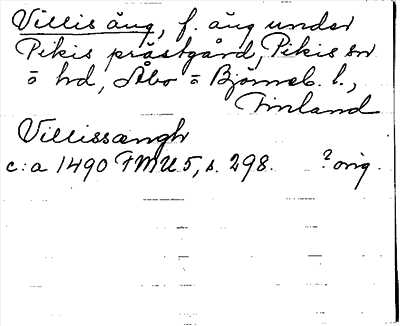 Villis äng, f. äng under
Pikis prästgård, Pikis sn
o hd, Åbo o Björneb. l.,
Finland
Villissængh
c:a 1490 FMU 5, s. 298. ? orig.